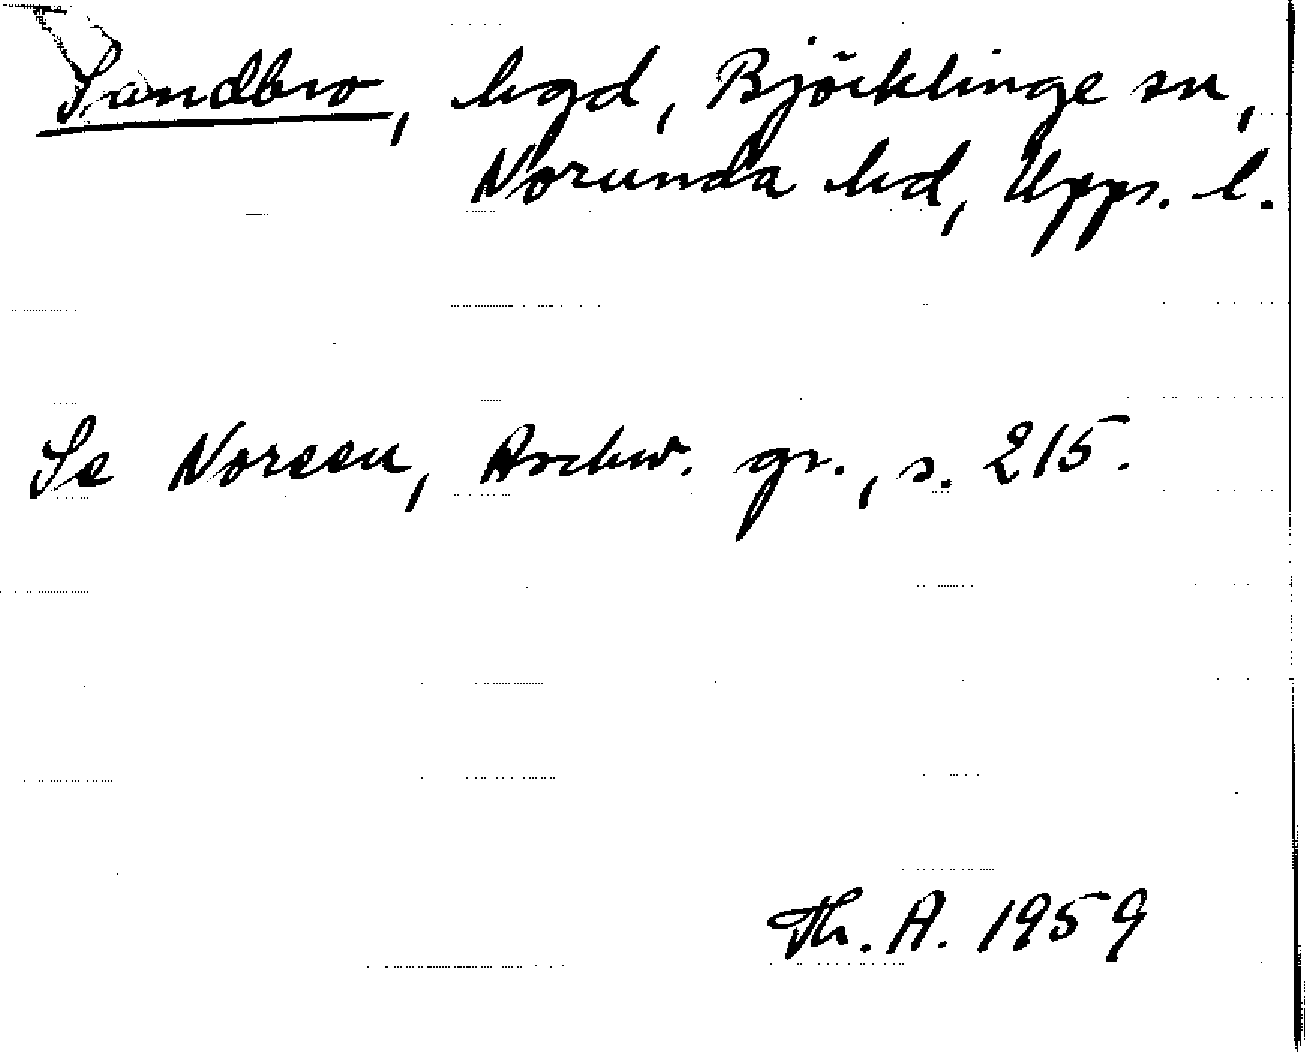 Sandbro, hgd, Björklinge sn,
Norunda hd, Upps. l.
Se Noreen, Aschw. gr., s. 215.
Th. A. 1959